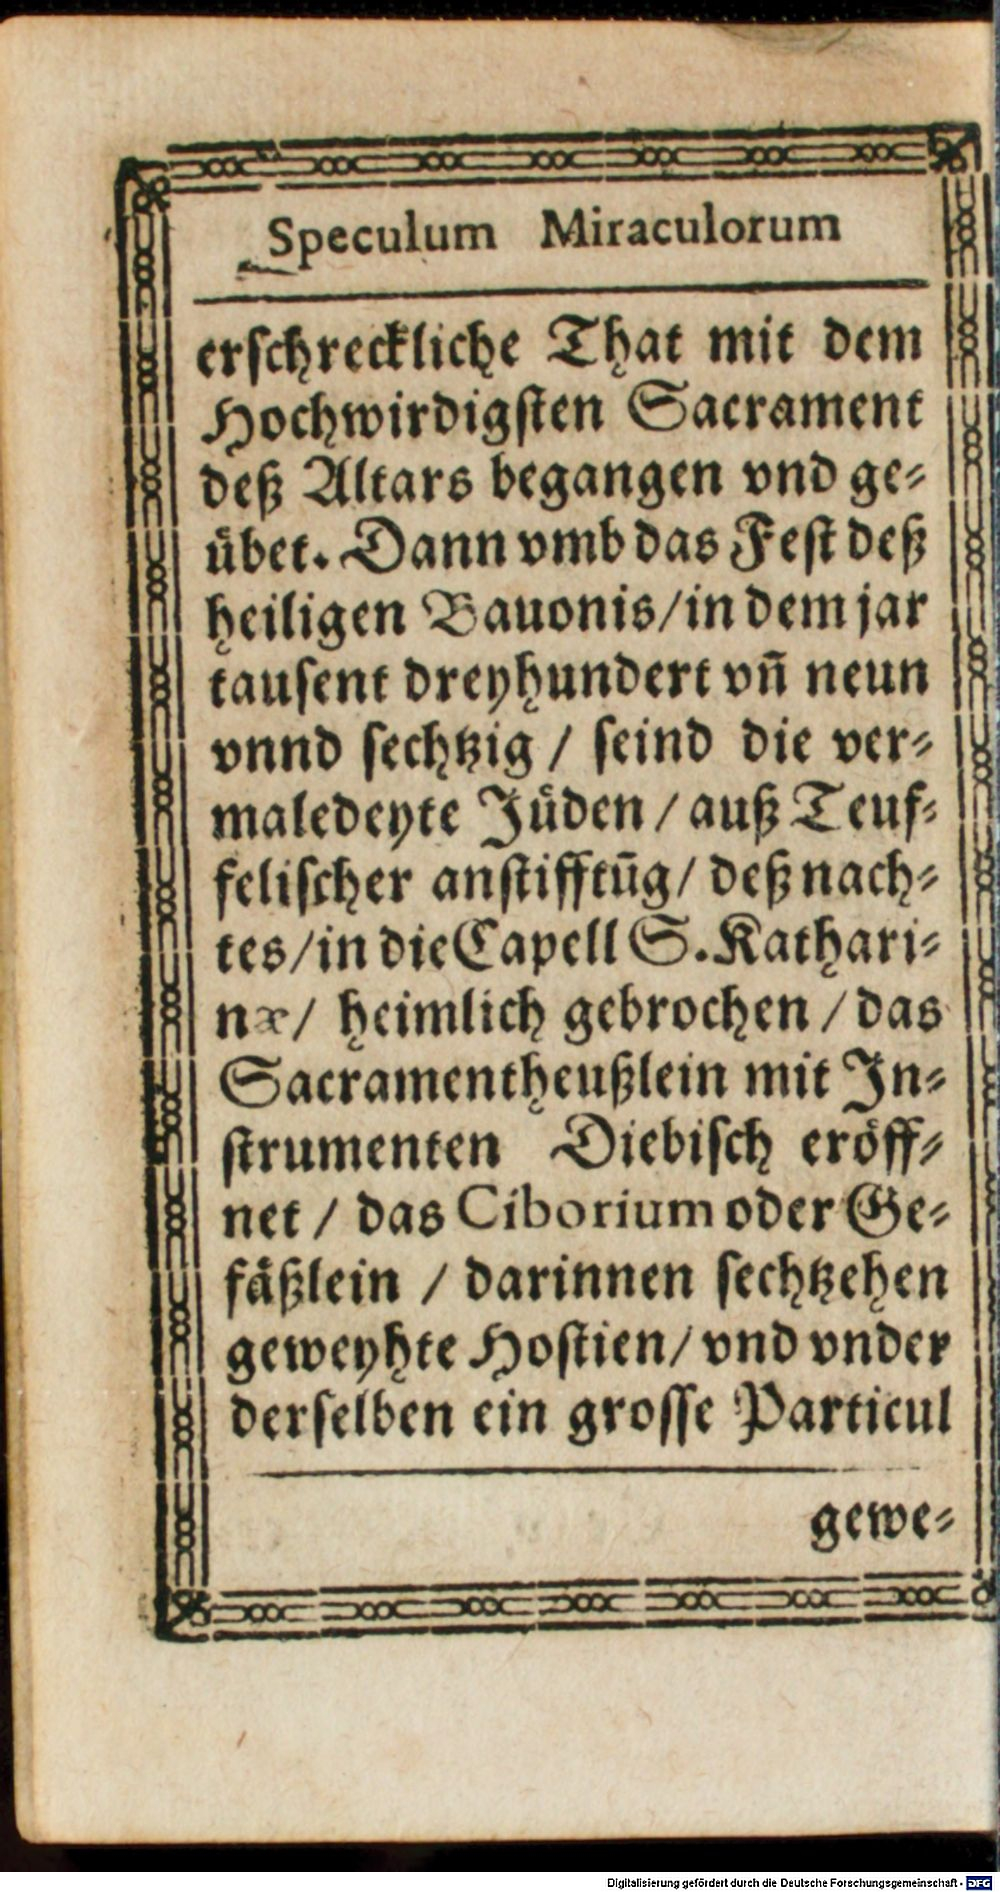 Speculum Miraculorum
erschreckliche That mit dem
Hochwirdigsten Sacrament
deß Altars begangen vnd ge-
übet. Dann vmb das Fest deß
heiligen Bauonis/in dem jar
tausent dreyhundert vñ neun
vnnd sechtzig / seind die ver-
maledeyte Jüden / auß Teuf-
felischer anstifftũg/ deß nach-
tes/in die Capell S. Kathari-
næ/ heimlich gebrochen / das
Sacramentheußlein mit In-
strumenten Diebisch eröff-
net / das Ciborium oder Ge-
fäßlein / darinnen sechtzehen
geweyhte Hostien/ vnd vnder
derselben ein grosse Particul
gewe-
Digitalisierung gefördert durch die Deutsche Forschungsgemeinschaft - DFG